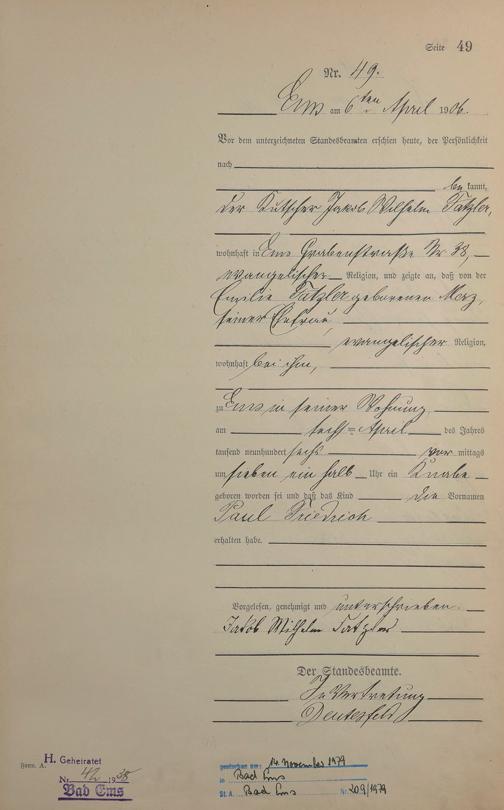 Seite 49
Nr. 49.
Ems am 6ten April 1906.
Vor dem unterzeichneten Standesbeamten erschien heute, der Persönlichkeit
nach
bekannt,
der Kutscher Jakob Wilhelm Tatzler,
wohnhaft in Ems Grabenstraße Nr 38,
evangelischer Religion, und zeigte an, daß von der
Emilie Tatzler geborenen Merz,
seiner Ehefrau,
evangelischer Religion,
wohnhaft bei ihm,
zu Ems in seiner Wohnung
am sechs=April des Jahres
tausend neunhundert sechs vor mittags
um sieben ein halb Uhr ein Knabe
geboren worden sei und daß das Kind die Vornamen
Paul Friedrich
erhalten habe.
Vorgelesen, genehmigt und unterschrieben.
Jakob Wilhelm Tatzler
Der Standesbeamte.
In Vertretung
H. Geheiratet
Nr. 42 1938
Bad Ems
gestorben am: 14. November 1979
in Bad Ems
St.A. Bad Ems Nr. 209/1979